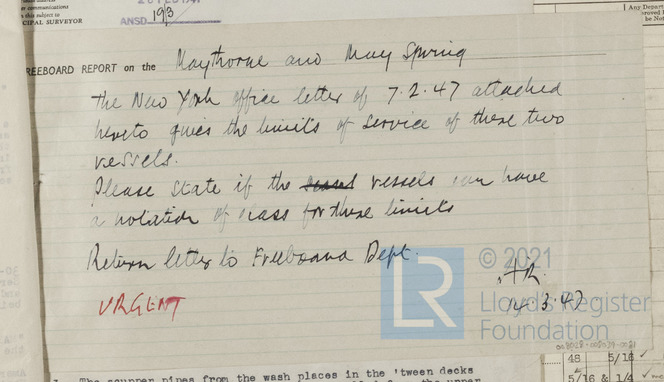 communications
this subject to
CIPAL SURVEYOR
ANSD 193
REEBOARD REPORT on the Maythorne and May Spring
The New York Office letter of 7.2.47 attached
hereto gives the limits of service of these two
vessels.
Please state if the vessels can have
a notation of class for these limits
Return letter to Freeboard Dept.
URGENT
14.3.47
© 2021
LR
Lloyd's Register
Foundation
48 5/16
5/16 & 1/4
The scupper pipes from the wash places in the 'tween decks